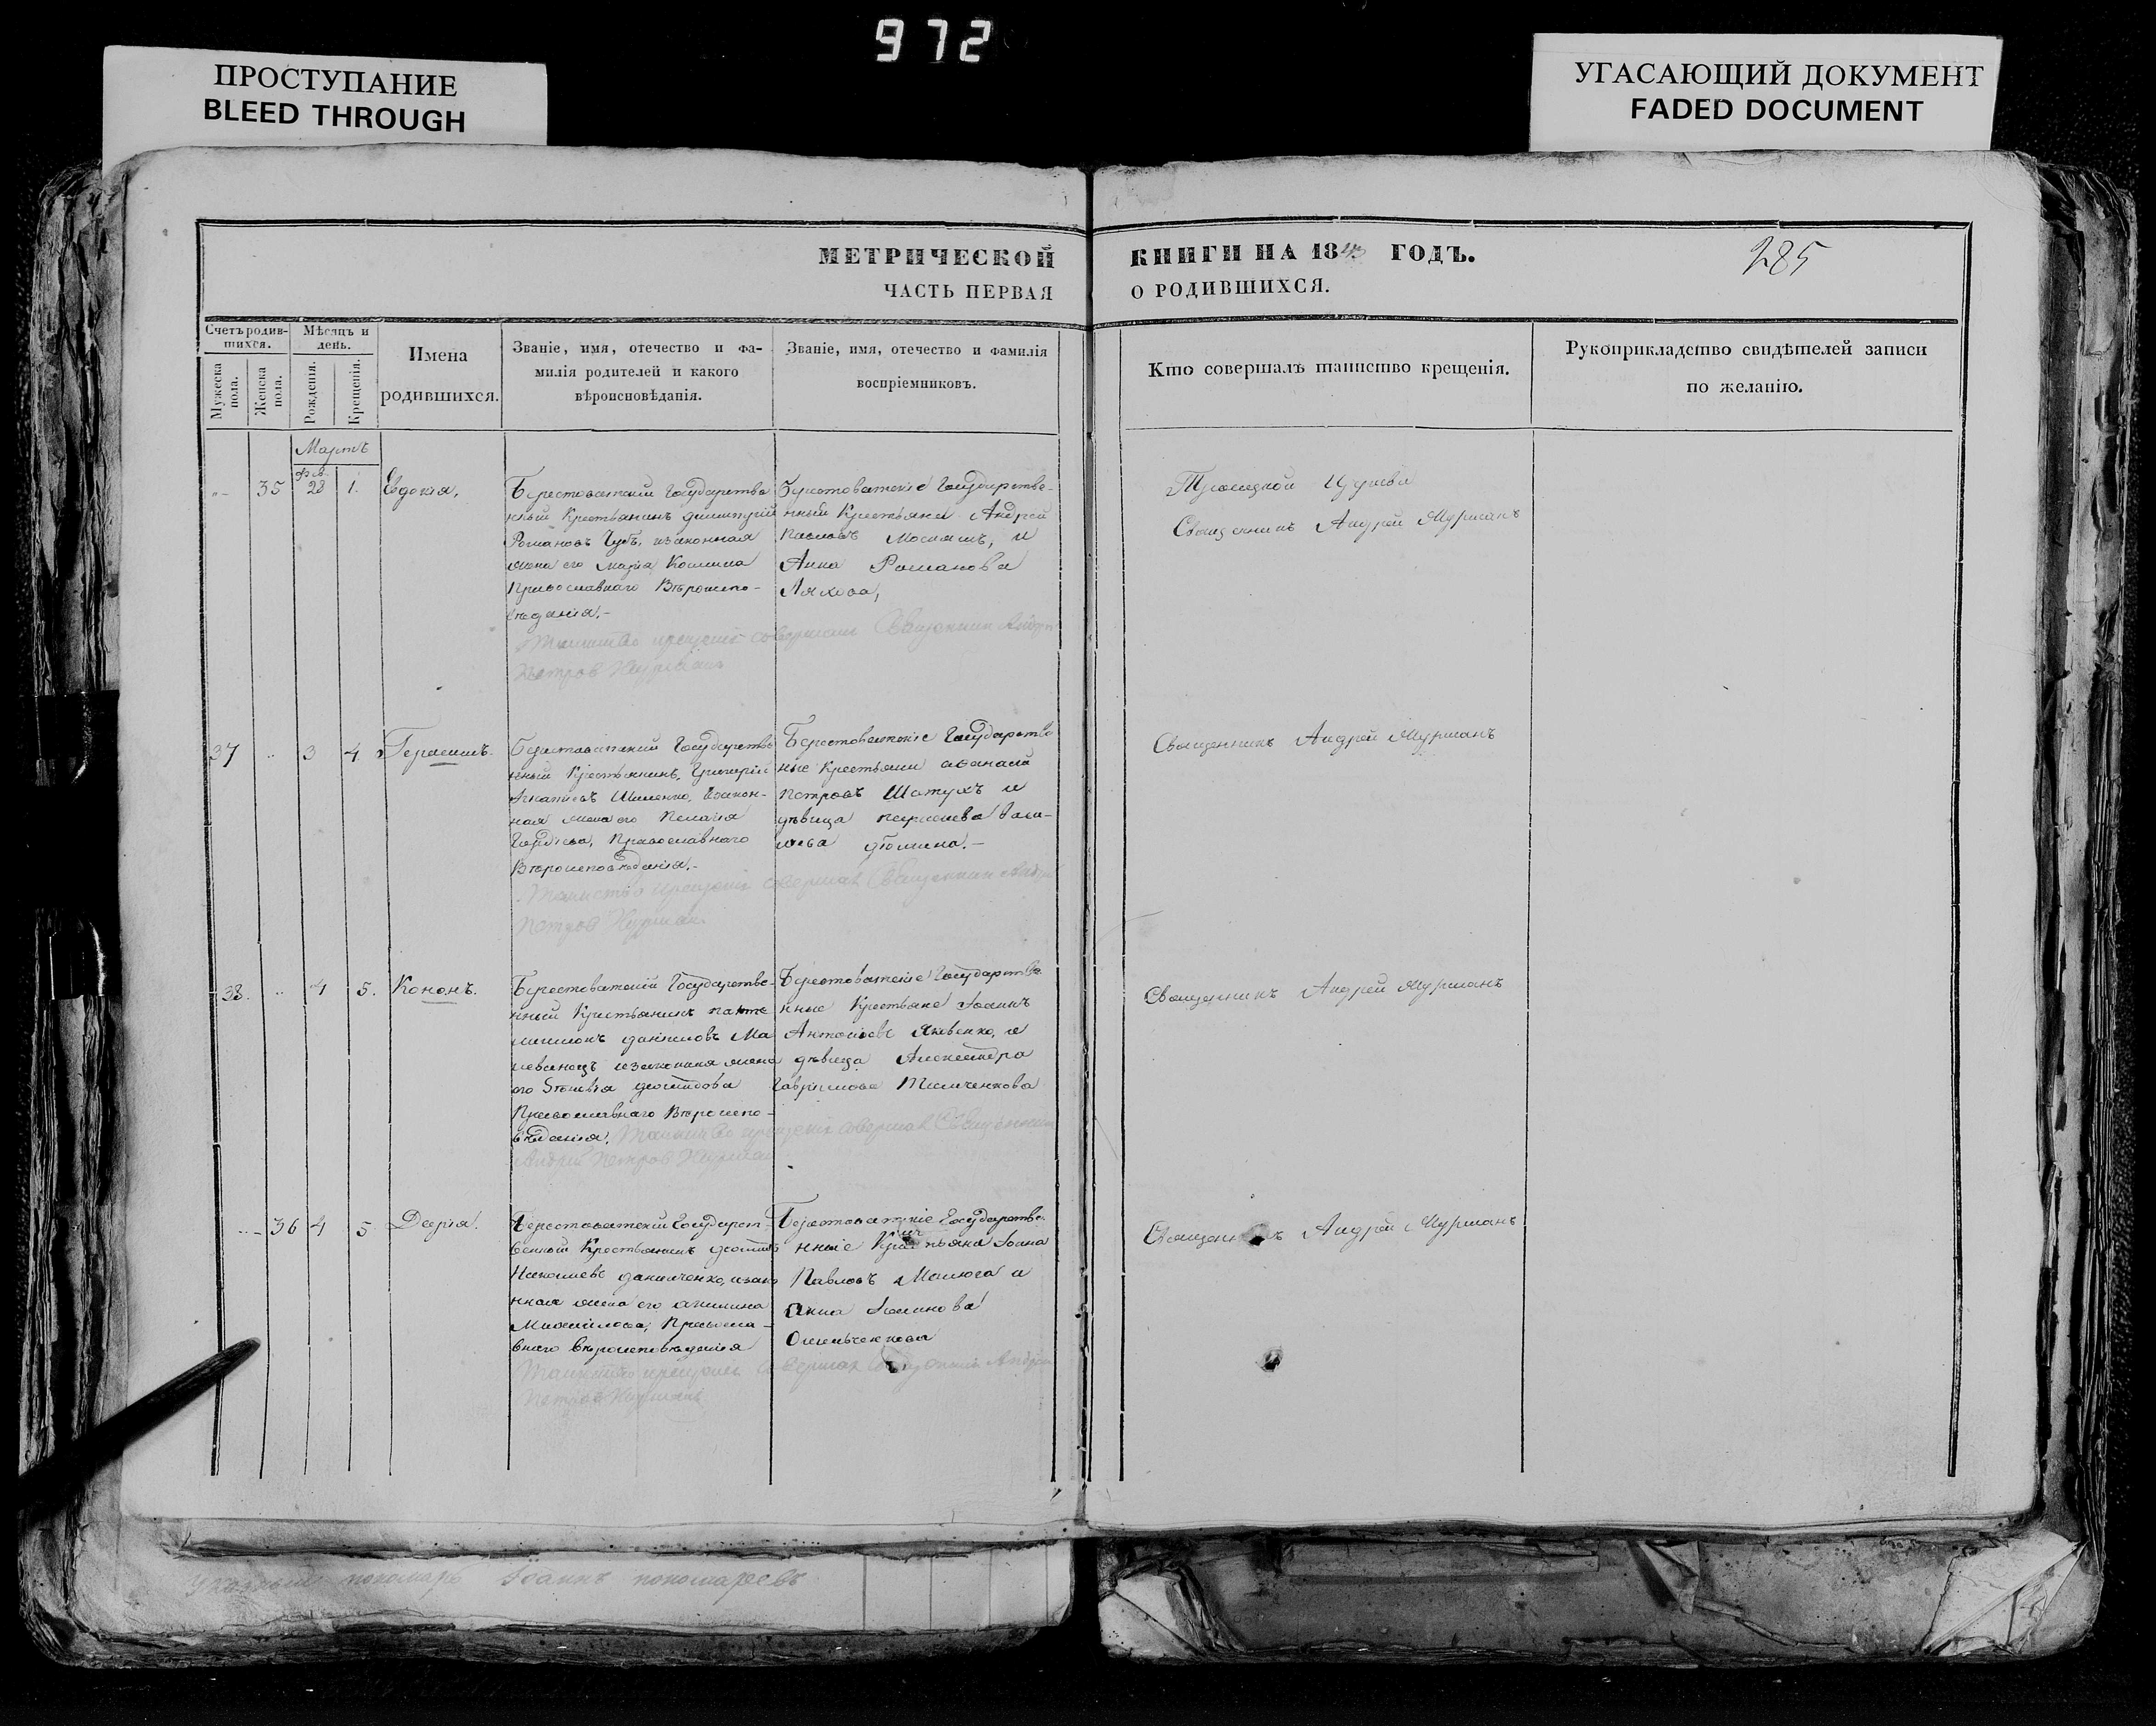 972
ПРОСТУПАНИЕ
BLEED THROUGH
УГАСАЮЩИЙ ДОКУМЕНТ
FADED DOCUMENT
МЕТРИЧЕСКОЙ
КНИГИ НА 1843 ГОДЪ.
285
ЧАСТЬ ПЕРВАЯ
О РОДИВШИХСЯ.
Счетъ родив-
шихся.
Мѣсяцъ и
день.
Мужеска
пола.
Женска
пола.
Рожденія.
Крещенія.
Имена
родившихся.
Званіе, имя, отечество и фа-
милія родителей и какого
вѣроисповѣданія.
Званіе, имя, отечество и фамилія
воспріемниковъ.
Кто совершалъ таинство крещенія.
Рукоприкладство свидѣтелей записи
по желанію.
Мартъ
35 28 1. Евдокія,
Берестоватскій Государстве
нный Крестьянинъ Димитрій
Романовъ Губъ, изаконная
жена его Марія Космина
Православнаго Вѣроиспо-
вѣданія.-
Таинство крещенія совершал Священник Андрей
Петров
Берестоватскіе Государстве-
нный Крестьяне Андрей
Павловъ и
Анна Романова
Ляхова,
Троицкой Церкви
Священникъ Андрей Мурманъ
37 .. 3 4 Герасимъ.
Берестоватскій Государстве
нный Крестьянинъ, Григорій
Игнатіевъ Шименко, Изакон-
ная жена его Пелагія
Гордіева, Православнаго
Вѣроисповѣданія.-
Таинство крещенія совершал Священник Андрей
Петров
Берестоватскіе Государстве
нные Крестьяни Афанасій
Петровъ Шатухъ и
дѣвица Васи-
лѣева
Священникъ Андрей Мурманъ
38. .. 4 5. Кононъ.
Берестоватскій Государстве-
нный Крестьянинъ Панте
лимонъ Даніиловъ Ма
изаконная жена
его
Православнаго Вѣроиспо-
вѣданія. Таинство крещенія совершал Священник
Андрей Петров
Берестоватскіе Государстве
нные Крестьяне Іоаннъ
Антоніевъ Яковенко, и
дѣвица Александра
Гаврилова Тимченкова
Священникъ Андрей Мурманъ
36 4 5 Дарія.
Берестоватскій Государст-
венный Крестьянинъ
Данильченко, изако
нная жена его Акилина
Михаилова, Правосла-
внаго вѣроисповѣданія
Таинство крещенія совершал Священник Андрей
Петров
Берестоватскіе Государстве-
нные Крестьяна Іоанъ
Павловъ Малюга и
Анна Іоаннова
Священникъ Андрей Мурманъ
пономарь Іоаннъ пономаревъ